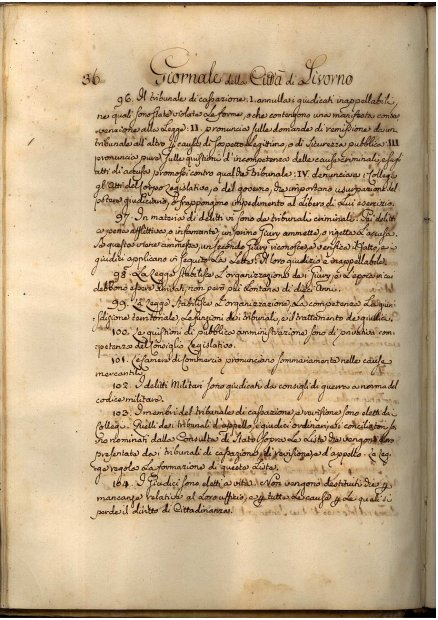 36 Giornale della Città di Livorno
96. Il tribunale di cassazione: I. annulla i giudicati inappellabili,
ne' quali sono state violate le forme, o che contengono una manifesta contra
venzione alla Legge: II. pronuncia sulle domande di remissione da un
tribunale all'altro per causa di sospetto legittimo, o di sicurezza pubblica: III
pronuncia pure sulle quistioni di incompetenza delle cause criminali, e sugli
atti di accusa promossi contro qualche tribunale: IV. denuncia a i Collegi
gli atti del Corpo Legislativo, o del governo, che importano usurpazione del
potere giudiciario, o frappongono impedimento al Libero di Lui esercizio.
97. In materia di delitti vi sono de' tribunali criminali. Pei delitti
a pena afflittiva, o infamante, un primo Jury ammette, o rigetta l'accusa.
Se questa viene ammessa, un secondo Jury riconosce, e verifica il fatto, e i
giudici applicano in seguito la Legge: il loro giudizio è inappellabile.
98. La Legge stabilisce l'organizzazione de' Jury, e le epoche in cui
debbono essere attivati, non però più lontane di dieci anni.
99. La Legge stabilisce l'organizzazione, la competenza, la giuri
sdizione territoriale, le funzioni dei tribunali, e il trattamento de' giudici.
100. Le quistioni di pubblica amministrazione sono di privativa com
petenza del Consiglio Legislativo.
101. Le Camere di Commercio pronunciano sommariamente nelle cause
mercantili.
102. I delitti Militari sono giudicati da consigli di guerra a norma del
codice militare.
103. I membri del tribunale di cassazione, e revisione sono eletti da
Collegi. Quelli de' tribunali d'appello, i giudici ordinari, e i conciliatori so
no nominati dalla Consulta di Stato sopra le liste che vengono loro
presentate da' tribunali di cassazione, di revisione, e d'appello. La leg
ge regola la formazione di queste liste.
104. I Giudici sono eletti a vita. Non vengono destituiti che per
mancanze relative al loro uffizio, e per tutte le cause per le quali si
perde il diritto di Cittadinanza.